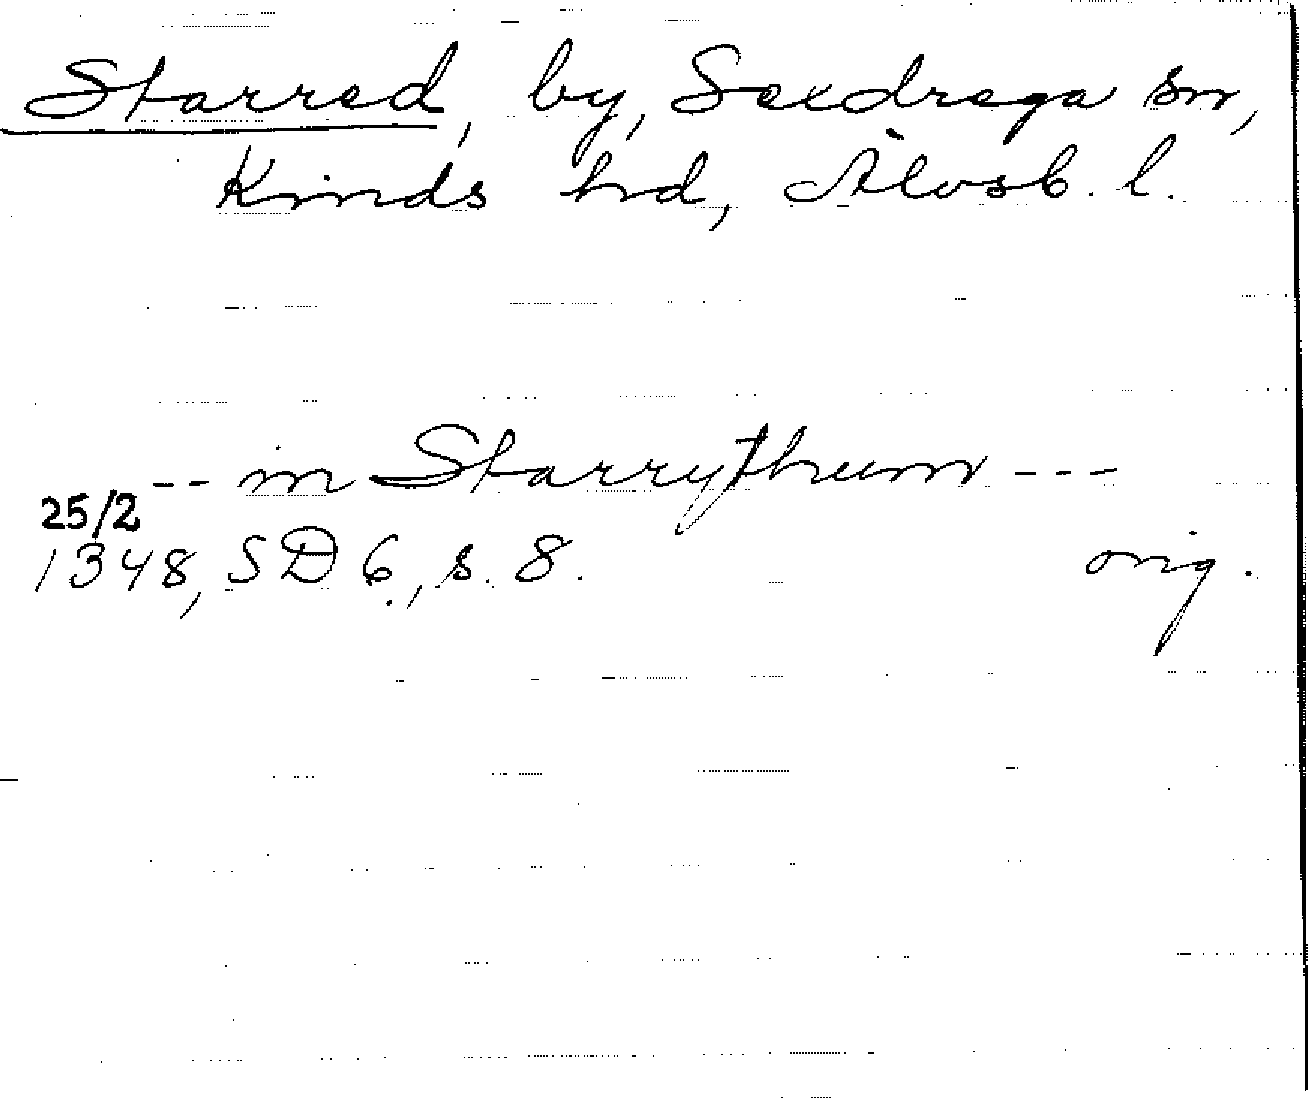 Starred, by, Sexdrega sn,
Kinds hd, Älvsb. l.
-- in Starrythum ---
25/2
1348, SD 6, s. 8. orig.